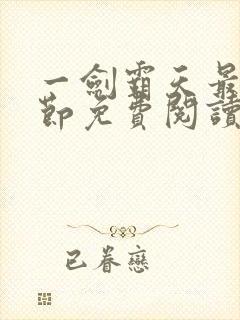 一劍霸天最
節免費閱讀
已眷戀